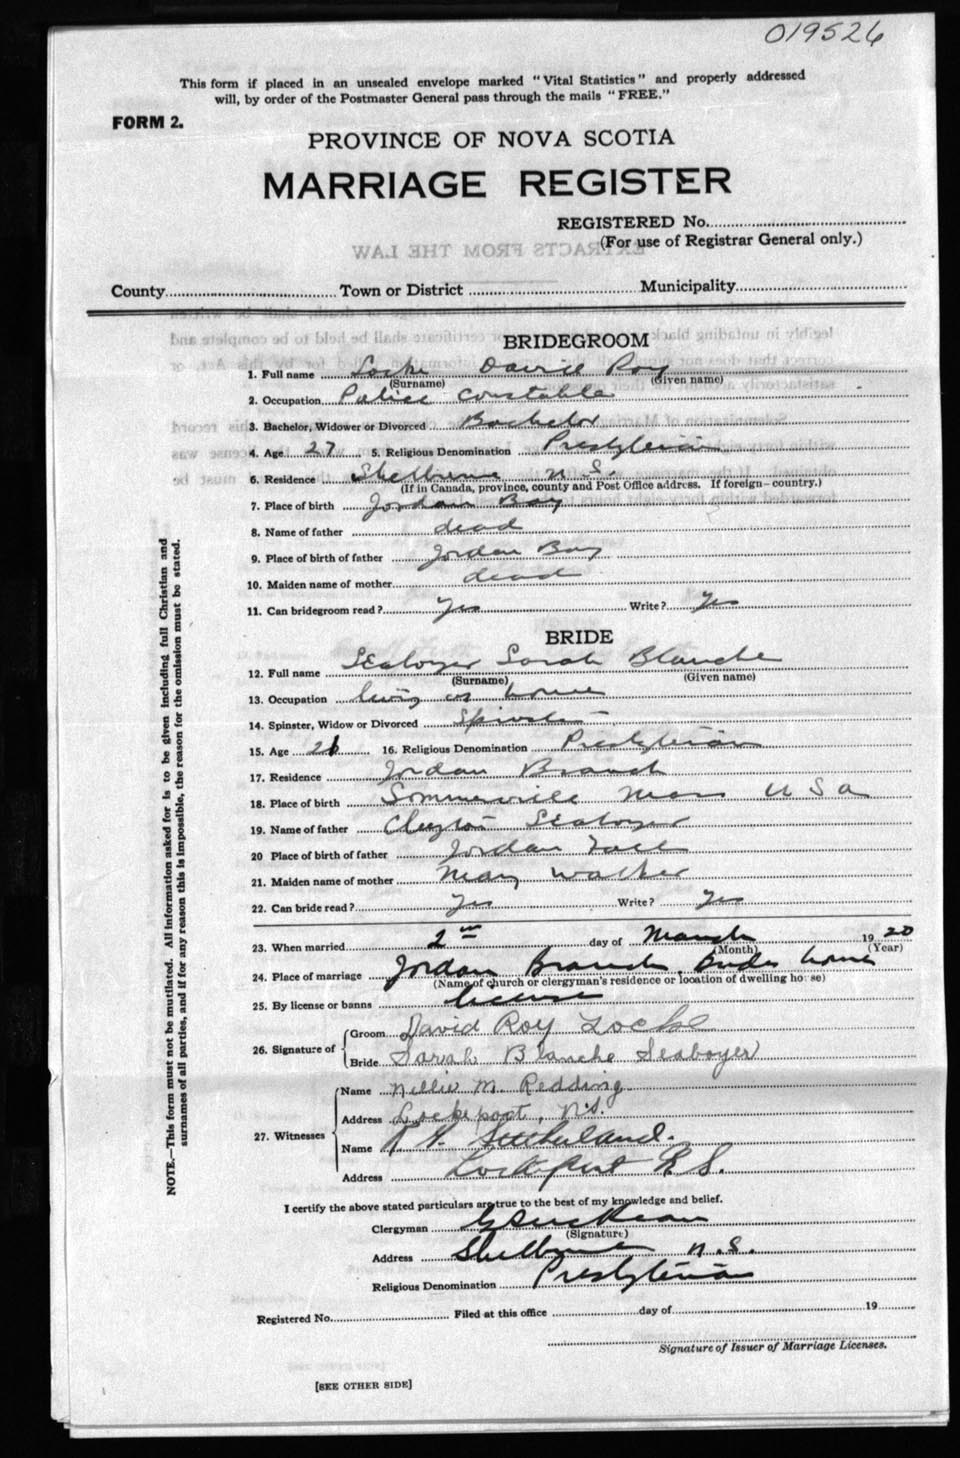 019526
This form if placed in an unsealed envelope marked "Vital Statistics" and properly addressed
will, by order of the Postmaster General pass through the mails "FREE."
FORM 2.
PROVINCE OF NOVA SCOTIA
MARRIAGE REGISTER
REGISTERED No.
(For use of Registrar General only.)
EXTRACTS FROM THE LAW
County Town or District Municipality
BRIDEGROOM
1. Full name Locke David Roy
(Surname) (Given name)
2. Occupation Police Constable
3. Bachelor, Widower or Divorced Bachelor
4. Age 27 5. Religious Denomination Presbyterian
6. Residence Shelburne N.S.
(If in Canada, province, county and Post Office address. If foreign—country.)
7. Place of birth Jordan Bay
8. Name of father dead
9. Place of birth of father Jordan Bay
10. Maiden name of mother dead
11. Can bridegroom read? Yes Write? Yes
BRIDE
12. Full name Seaboyer Sarah Blanche
(Surname) (Given name)
13. Occupation living at home
14. Spinster, Widow or Divorced Spinster
15. Age 26 16. Religious Denomination Presbyterian
17. Residence Jordan Branch
18. Place of birth Sommerville Mass USA
19. Name of father Clayton Seaboyer
20 Place of birth of father Jordan Falls
21. Maiden name of mother Mary Walker
22. Can bride read? Yes Write? Yes
23. When married 2nd day of March 1920
(Month) (Year)
24. Place of marriage Jordan Branch, Brides home
(Name of church or clergyman's residence or location of dwelling house)
25. By license or banns license
26. Signature of Groom David Roy Locke
Bride Sarah Blanche Seaboyer
27. Witnesses Name Nellie M. Redding
Address Lockeport, N.S.
Name Sutherland.
Address Lockeport N.S.
I certify the above stated particulars are true to the best of my knowledge and belief.
Clergyman
(Signature)
Address Shelburne N.S.
Religious Denomination Presbyterian
Registered No. Filed at this office day of 19
Signature of Issuer of Marriage Licenses.
[SEE OTHER SIDE]
NOTE.—This form must not be mutilated. All information asked for is to be given including full Christian and
surnames of all parties, and if for any reason this is impossible, the reason for the omission must be stated.